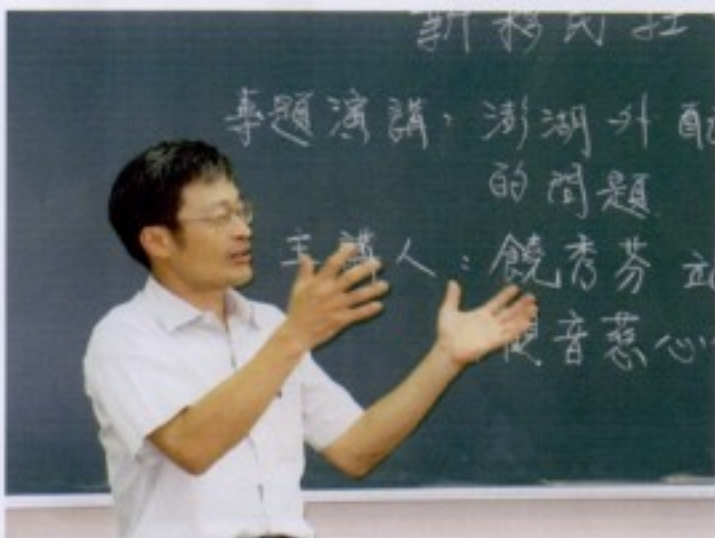 新移民社
專題演講，澎湖外配
的問題
主講人：饒秀芬
觀音慈心